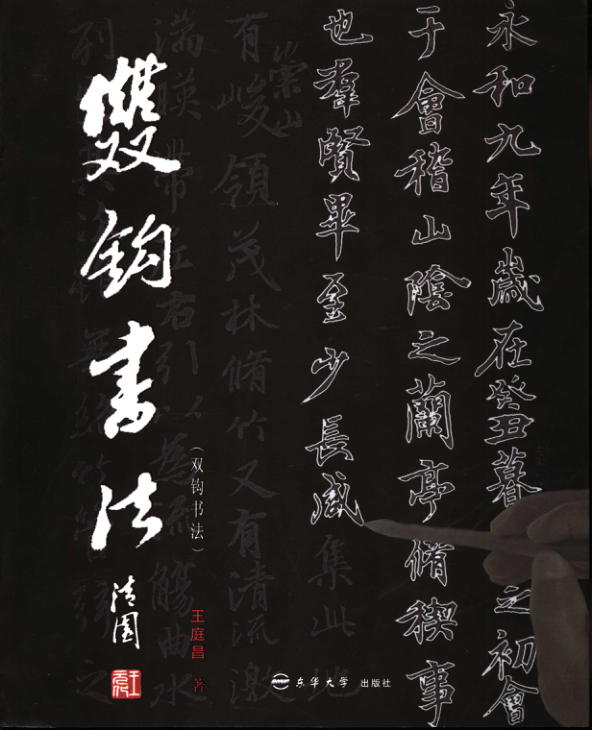 永和九年歲在癸丑暮之初會
于會稽山陰之蘭亭脩稧事
也羣賢畢至少長咸集此地
崇山
有峻領茂林脩竹又有清流激
湍暎帶左右引以為流觴曲水
雙鈎書法
（双钩书法）
王庭昌 著
东华大学 出版社